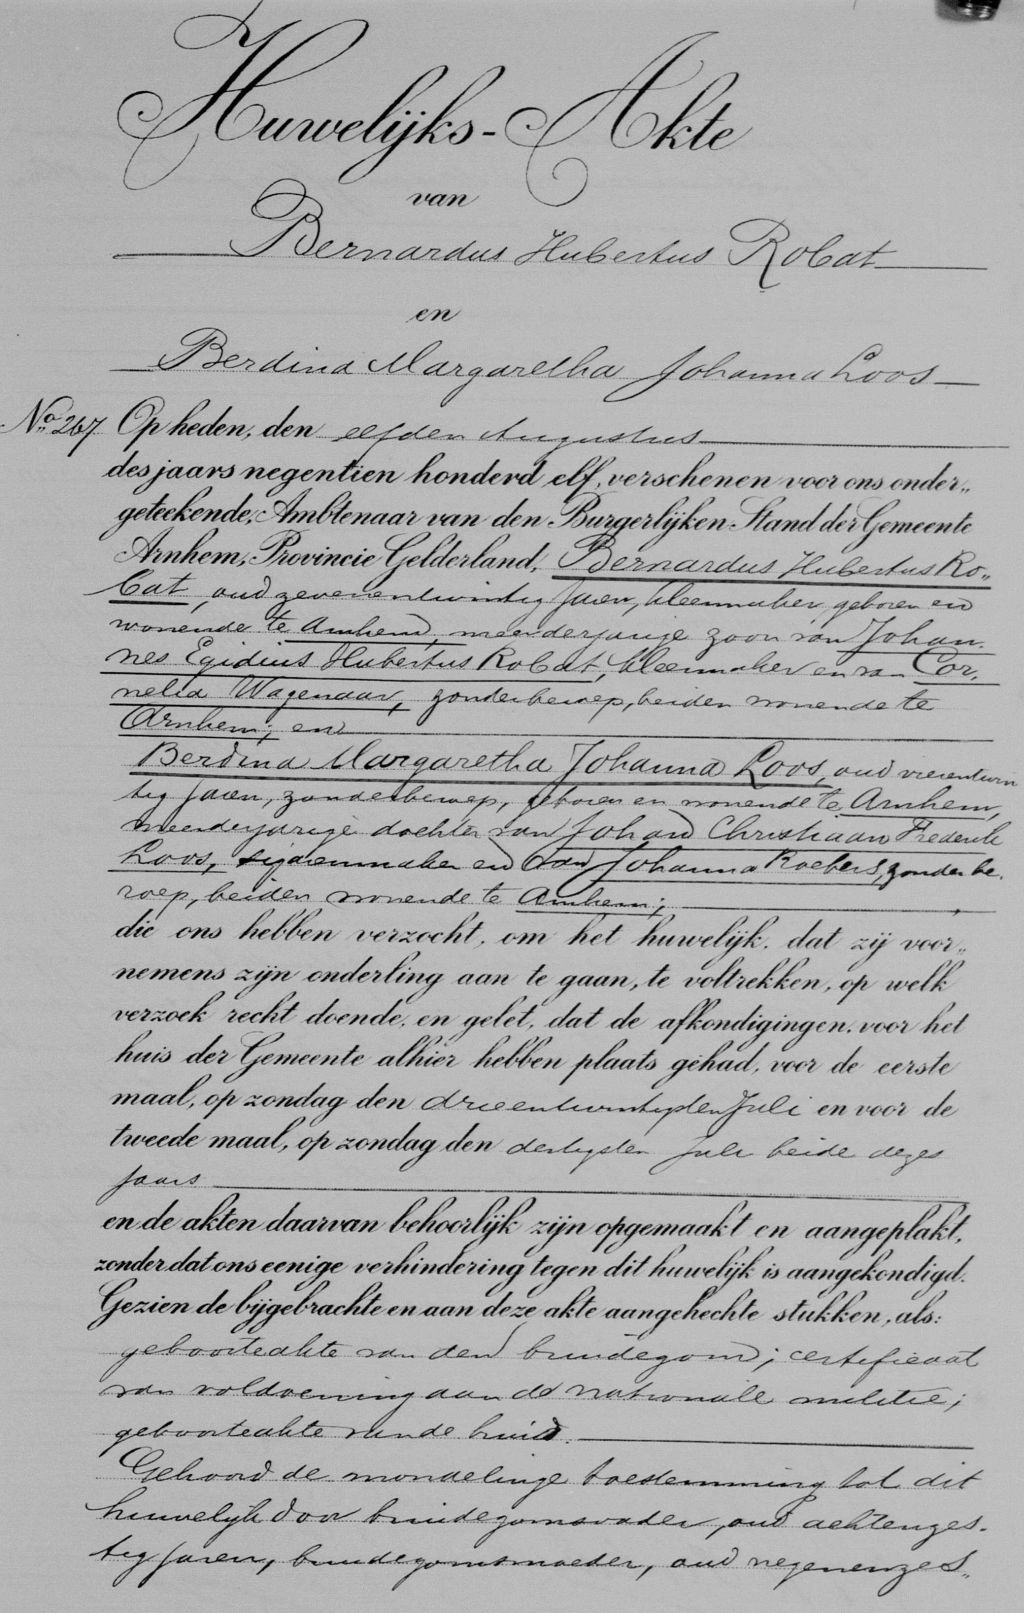 Huwelijks-Akte
van
Bernardus Hubertus Robat
en
Berdina Margaretha Johanna Loos
No. 267 Op heden, den elfden Augustus
des jaars negentien honderd elf, verschenen voor ons onder„
geteekende, Ambtenaar van den Burgerlijken Stand der Gemeente
Arnhem, Provincie Gelderland, Bernardus Hubertus Ro„
bat, oud zevenentwintig jaren, kleermaker, geboren en
wonende te Arnhem, meerderjarige zoon van Johan„
nes Egidius Hubertus Robat, kleermaker en van Cor„
nelia Wagenaar, zonder beroep, beiden wonende te
Arnhem; en
Berdina Margaretha Johanna Loos, oud vierentwin
tig jaren, zonder beroep, geboren en wonende te Arnhem,
meerderjarige dochter van Johan Christiaan Frederik
Loos, sigarenmaker en van Johanna Roebers, zonder be„
roep, beiden wonende te Arnhem;
die ons hebben verzocht, om het huwelijk, dat zij voor„
nemens zijn onderling aan te gaan, te voltrekken, op welk
verzoek recht doende, en gelet, dat de afkondigingen, voor het
huis der Gemeente alhier hebben plaats gehad, voor de eerste
maal, op zondag den drieentwintigsten Juli en voor de
tweede maal, op zondag den dertigsten Juli beide dezes
jaars
en de akten daarvan behoorlijk zijn opgemaakt en aangeplakt,
zonder dat ons eenige verhindering tegen dit huwelijk is aangekondigd.
Gezien de bijgebrachte en aan deze akte aangehechte stukken, als:
geboorteakte van den bruidegom; certificaat
van voldoening aan de nationale militie;
geboorteakte van de bruid.
Gehoord de mondelinge toestemming tot dit
huwelijk door bruidegomsvader, oud achtenzes„
tig jaren, bruidegomsmoeder, oud negenenzes„